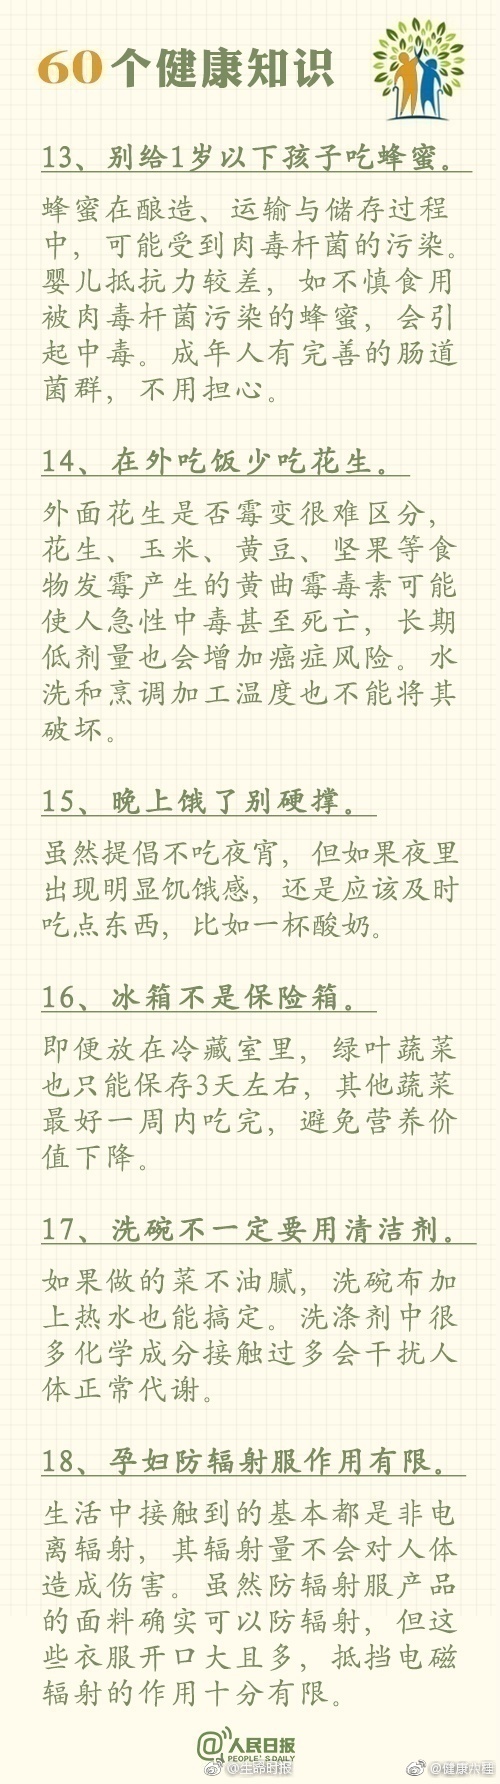 60个健康知识
13、别给1岁以下孩子吃蜂蜜。
蜂蜜在酿造、运输与储存过程
中，可能受到肉毒杆菌的污染。
婴儿抵抗力较差，如不慎食用
被肉毒杆菌污染的蜂蜜，会引
起中毒。成年人有完善的肠道
菌群，不用担心。
14、在外吃饭少吃花生。
外面花生是否霉变很难区分，
花生、玉米、黄豆、坚果等食
物发霉产生的黄曲霉毒素可能
使人急性中毒甚至死亡，长期
低剂量也会增加癌症风险。水
洗和烹调加工温度也不能将其
破坏。
15、晚上饿了别硬撑。
虽然提倡不吃夜宵，但如果夜里
出现明显饥饿感，还是应该及时
吃点东西，比如一杯酸奶。
16、冰箱不是保险箱。
即便放在冷藏室里，绿叶蔬菜
也只能保存3天左右，其他蔬菜
最好一周内吃完，避免营养价
值下降。
17、洗碗不一定要用清洁剂。
如果做的菜不油腻，洗碗布加
上热水也能搞定。洗涤剂中很
多化学成分接触过多会干扰人
体正常代谢。
18、孕妇防辐射服作用有限。
生活中接触到的基本都是非电
离辐射，其辐射量不会对人体
造成伤害。虽然防辐射服产品
的面料确实可以防辐射，但这
些衣服开口大且多，抵挡电磁
辐射的作用十分有限。
@人民日报
PEOPLE'S DAILY
@生命时报
@健康兴画